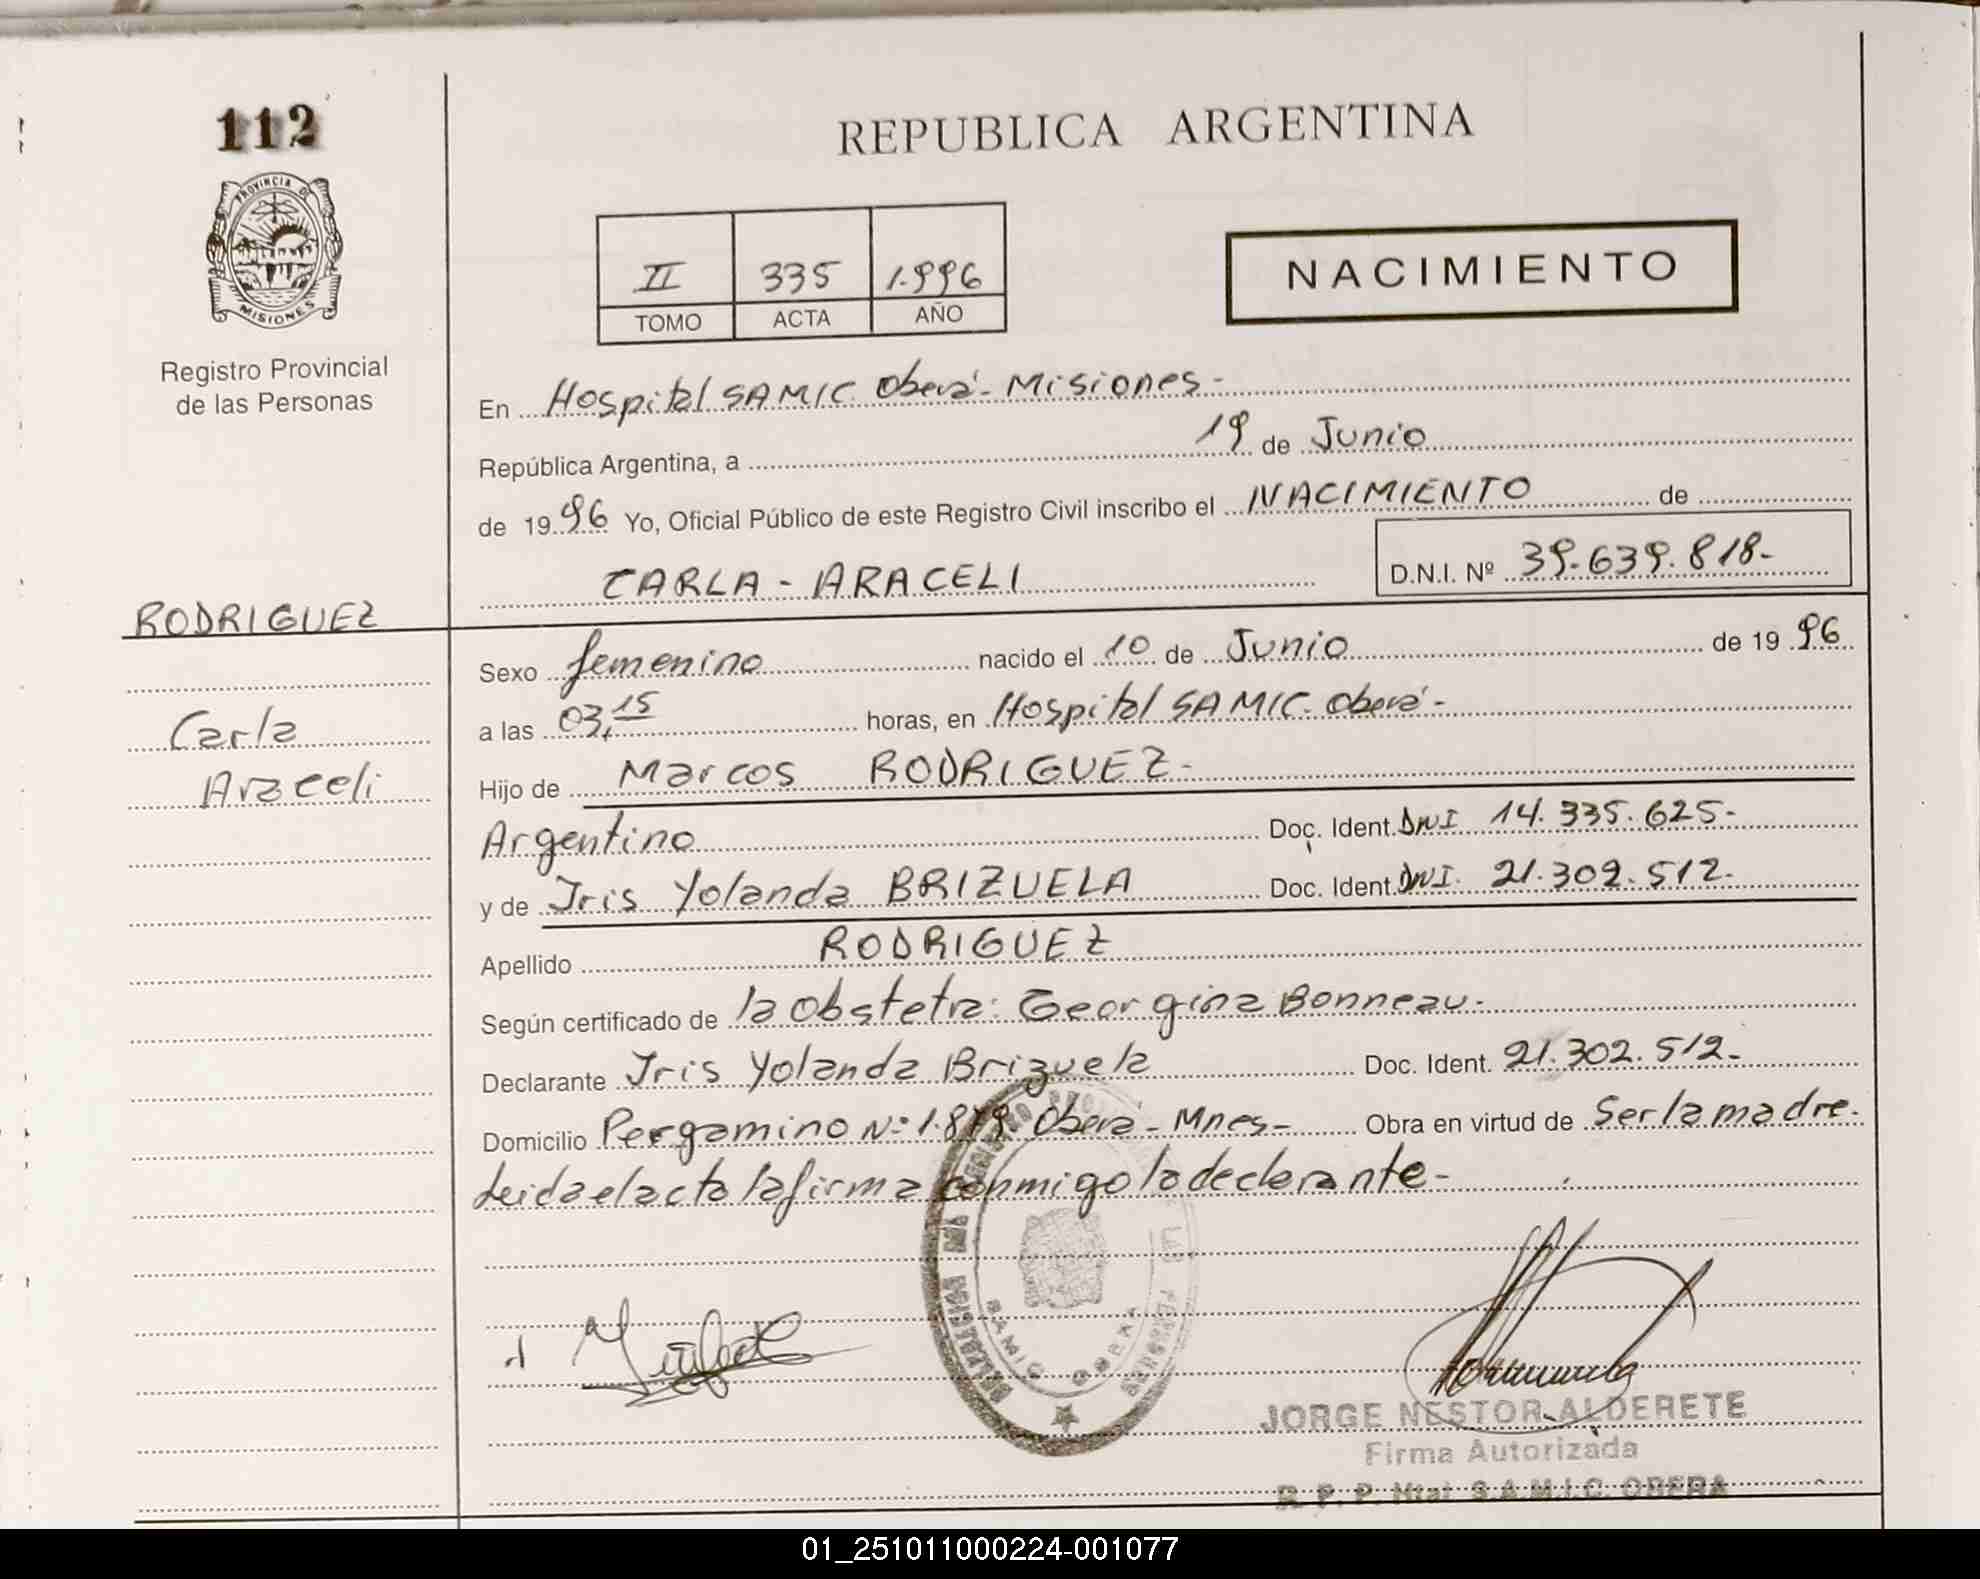 112
PROVINCIA DE
MISIONES
Registro Provincial
de las Personas
REPUBLICA ARGENTINA
II 335 1.996
TOMO ACTA AÑO
NACIMIENTO
En Hospital SAMIC. Oberá- Misiones-
República Argentina, a 19 de Junio
de 1996 Yo, Oficial Público de este Registro Civil inscribo el NACIMIENTO de
CARLA - ARACELI D.N.I. Nº 39.639.818-
RODRIGUEZ
Carla
Araceli
Sexo femenino nacido el 10 de Junio de 1996
a las 03,15 horas, en Hospital SAMIC. Oberá-
Hijo de Marcos RODRIGUEZ-
Argentino Doc. Ident. DNI 14.335.625-
y de Iris Yolanda BRIZUELA Doc. Ident. DNI. 21.302.512-
Apellido RODRIGUEZ
Según certificado de la Obstetra: Georgina Bonneau-
Declarante Iris Yolanda Brizuela Doc. Ident. 21.302.512-
Domicilio Pergamino Nº 1.879. Oberá - Mnes- Obra en virtud de Ser la madre.
Leida el acta la firma conmigo la declarante-
SAMIC OBERA
JORGE NESTOR ALDERETE
Firma Autorizada
R. P. P. Htal S.A.M.I.C. OBERA
01_251011000224-001077